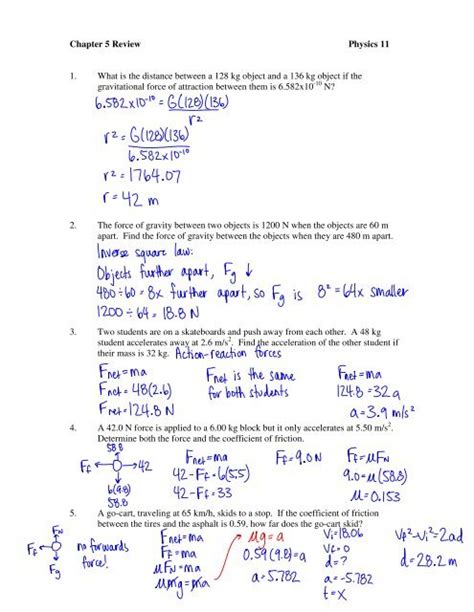 Chapter 5 Review Physics 11
1. What is the distance between a 128 kg object and a 136 kg object if the
gravitational force of attraction between them is 6.582x10⁻¹⁰ N?
6.582x10⁻¹⁰ = G(128)(136)
r²
r² = G(128)(136)
6.582x10⁻¹⁰
r² = 1764.07
r = 42 m
2. The force of gravity between two objects is 1200 N when the objects are 60 m
apart. Find the force of gravity between the objects when they are 480 m apart.
Inverse square law:
Objects further apart, Fg ↓
480÷60 = 8x further apart, so Fg is 8² = 64x smaller
1200 ÷ 64 = 18.8 N
3. Two students are on a skateboards and push away from each other. A 48 kg
student accelerates away at 2.6 m/s². Find the acceleration of the other student if
their mass is 32 kg. Action-reaction forces
Fnet = ma Fnet is the same Fnet = ma
Fnet = 48(2.6) for both students 124.8 = 32a
Fnet = 124.8 N a = 3.9 m/s²
4. A 42.0 N force is applied to a 6.00 kg block but it only accelerates at 5.50 m/s².
Determine both the force and the coefficient of friction.
58.8
Ff 42 Fnet = ma Ff = 9.0 N Ff = μFN
42 - Ff = 6(5.5) 9.0 = μ(58.8)
6(9.8) 42 - Ff = 33 μ = 0.153
58.8
5. A go-cart, traveling at 65 km/h, skids to a stop. If the coefficient of friction
between the tires and the asphalt is 0.59, how far does the go-cart skid?
FN Fnet = ma μg = a Vi = 18.06 Vf² - Vi² = 2ad
Ff no forwards Ff = ma 0.59(9.8) = a Vf = 0 d = 28.2 m
force! μFN = ma a = 5.782 d = ?
Fg μmg = ma a = -5.782
t = x